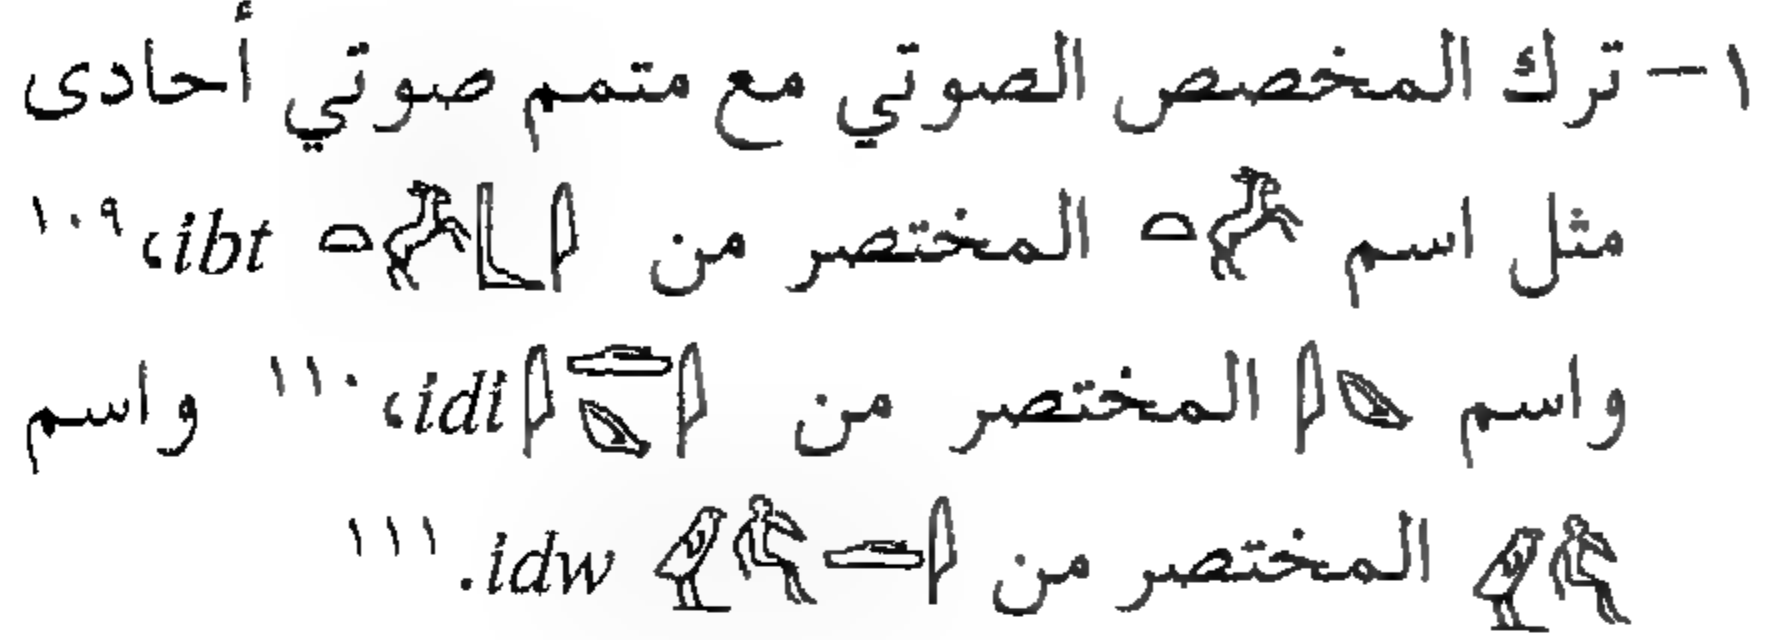 ١- ترك المخصص الصوتي مع متمم صوتي أحادى
مثل اسم 𓃙𓏏 المختصر من 𓇋𓃀𓃙𓏏 ibt،١٠٩
واسم 𓂈𓇋 المختصر من 𓇋𓂧𓂈𓇋 idi،١١٠ واسم
𓀔𓅱 المختصر من 𓇋𓂧𓀔𓅱 idw.١١١